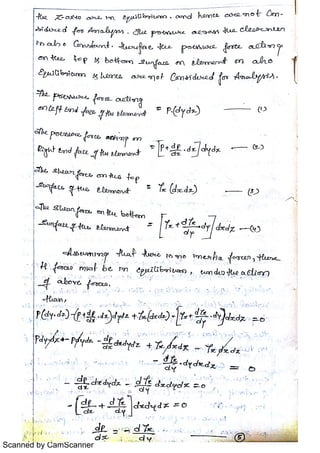 the z-axis are in equilibrium, and hence are not Con-
sidered for Analysis. The pressure across the element
is also Constant. therefore the pressure force acting
on the top & bottom Surface on element on also
Equilibrium & hence are not Considered for Analysis.
The pressure force acting
on left End face of the element = P.(dydz) — (1)
The pressure force acting on
Right End face of the element = [P + dp/dx . dx] dydz — (2)
The Shear force on the top
Surface of the Element = τx (dxdz) — (3)
The Shear force on the bottom
Surface of the Element = [τx + dτx/dy . dy] dxdz — (4)
Assuming that there is no inertia forces, then
forces must be in equilibrium, under the action
of above forces.
Then,
P(dy.dz) - (P + dp/dx .dx) dydz + τx (dxdz) - [τx + dτx/dy .dy] dxdz = 0
Pdydz - Pdydz - dp/dx dxdydz + τx dxdz - τx dxdz
- dτx/dy .dydxdz = 0
- dp/dx dxdydz - dτx/dy dxdydz = 0
- [dp/dx + dτx/dy] dxdydz = 0
dp/dx = - dτx/dy — (5)
Scanned by CamScanner